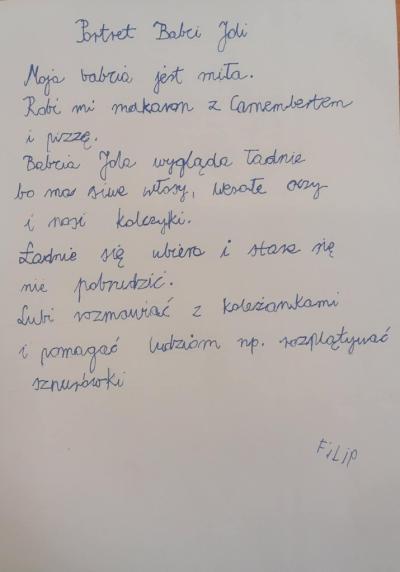 Portret Babci Joli
Moja babcia jest miła.
Robi mi makaron z Camembertem
i pizzę.
Babcia Jola wygląda ładnie
bo ma siwe włosy, wesołe oczy
i nosi kolczyki.
Ładnie się ubiera i stara się
nie pobrudzić.
Lubi rozmawiać z koleżankami
i pomagać ludziom np. rozplątywać
sznurówki
FiLiP